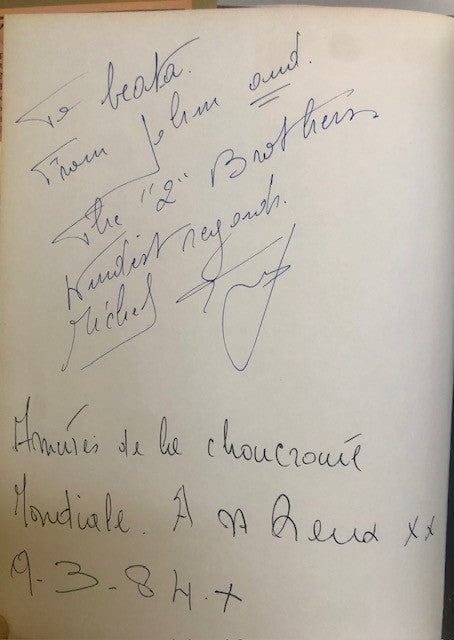 To beata.
From John and.
The "2" Brothers
Kindist regards.
Michel
Amitiés de la choucroute
Mondiale. A
9.3.84.x